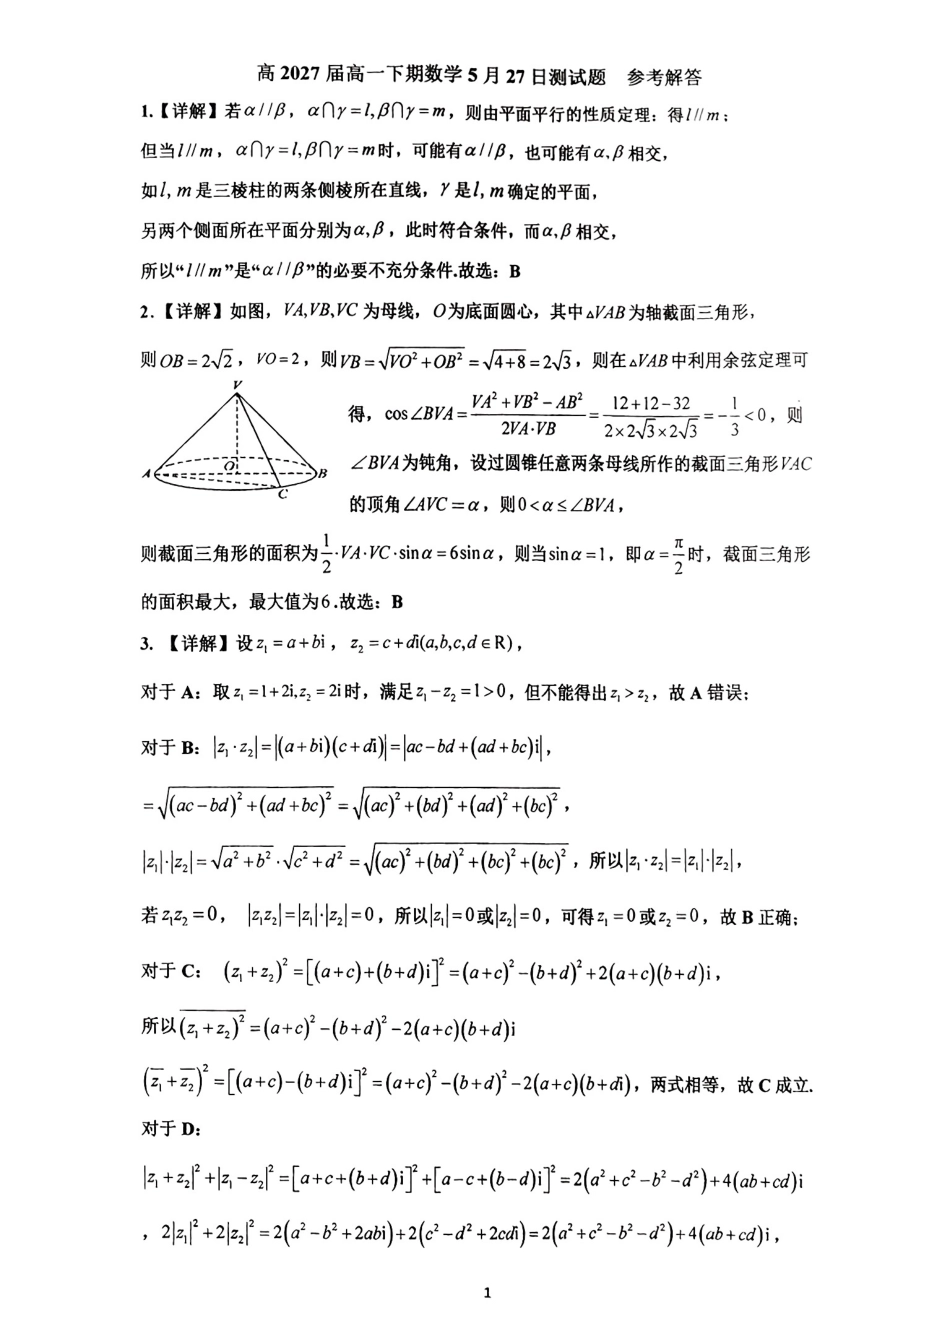 高 2027 届高一下期数学 5 月 27 日测试题 参考解答
1.【详解】若α//β，α∩γ=l,β∩γ=m，则由平面平行的性质定理：得l//m；
但当l//m，α∩γ=l,β∩γ=m时，可能有α//β，也可能有α,β相交，
如l, m是三棱柱的两条侧棱所在直线，γ是l, m确定的平面，
另两个侧面所在平面分别为α,β，此时符合条件，而α,β相交，
所以“l//m”是“α//β”的必要不充分条件.故选：B
2.【详解】如图，VA,VB,VC 为母线，O为底面圆心，其中△VAB为轴截面三角形，
则OB=2√2，VO=2，则VB=√(VO²+OB²)=√(4+8)=2√3，则在△VAB中利用余弦定理可
得，cos∠BVA=(VA²+VB²-AB²)/(2VA·VB)=(12+12-32)/(2×2√3×2√3)=-1/3<0，则
V
A
O
B
C
∠BVA为钝角，设过圆锥任意两条母线所作的截面三角形VAC
的顶角∠AVC=α，则0<α≤∠BVA，
则截面三角形的面积为1/2·VA·VC·sinα=6sinα，则当sinα=1，即α=π/2时，截面三角形
的面积最大，最大值为6.故选：B
3. 【详解】设z₁=a+bi，z₂=c+di(a,b,c,d∈R)，
对于 A：取z₁=1+2i,z₂=2i时，满足z₁-z₂=1>0，但不能得出z₁>z₂，故 A 错误；
对于 B：|z₁·z₂|=|(a+bi)(c+di)|=|ac-bd+(ad+bc)i|，
=√((ac-bd)²+(ad+bc)²)=√((ac)²+(bd)²+(ad)²+(bc)²)，
|z₁|·|z₂|=√(a²+b²)·√(c²+d²)=√((ac)²+(bd)²+(bc)²+(bc)²)，所以|z₁·z₂|=|z₁|·|z₂|，
若z₁z₂=0，|z₁z₂|=|z₁|·|z₂|=0，所以|z₁|=0或|z₂|=0，可得z₁=0或z₂=0，故 B 正确；
对于 C：(z₁+z₂)²=[(a+c)+(b+d)i]²=(a+c)²-(b+d)²+2(a+c)(b+d)i，
所以 z̅₁̅+̅z̅₂̅ (z₁+z₂)²=(a+c)²-(b+d)²-2(a+c)(b+d)i
(z̅₁+z̅₂)²=[(a+c)-(b+d)i]²=(a+c)²-(b+d)²-2(a+c)(b+di)，两式相等，故 C 成立.
对于 D：
|z₁+z₂|²+|z₁-z₂|²=[a+c+(b+d)i]²+[a-c+(b-d)i]²=2(a²+c²-b²-d²)+4(ab+cd)i
，2|z₁|²+2|z₂|²=2(a²-b²+2abi)+2(c²-d²+2cdi)=2(a²+c²-b²-d²)+4(ab+cd)i，
1